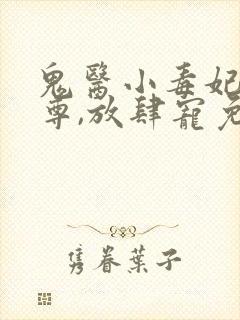 鬼醫小毒妃
尊,放肆寵
隽眷葉子